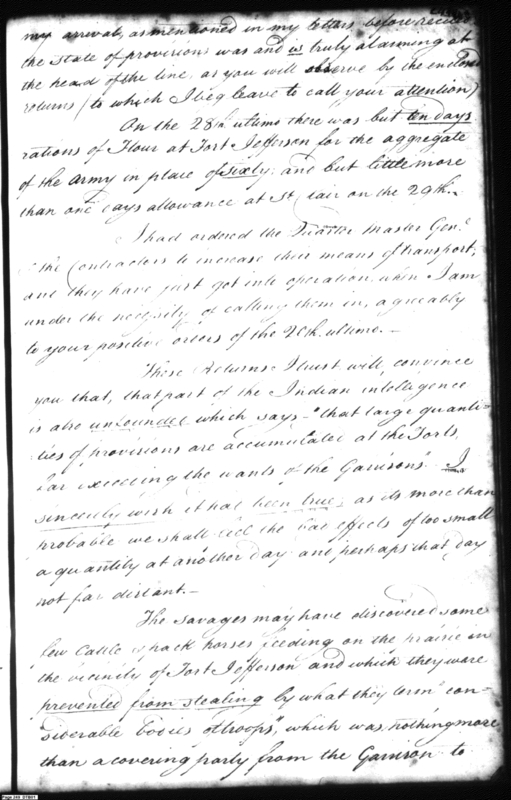 my arrival, as mentioned in my letters before recited
the state of provisions was and is truly alarming at
the head of the line, as you will observe by the enclosed
returns (to which I beg leave to call your attention)
On the 28th ultimo there was but ten days
rations of Flour at Fort Jefferson for the aggregate
of the Army in place of sixty; and but little more
than one days allowance at St Clair on the 29th.—
I had ordered the Quarter Master Genl.
& the Contractors to increase their means of transport;
and they have just got into operation when I am
under the necessity of calling them in, agreeably
to your positive orders of the 20th. ultimo.—
These Returns I trust will, convince
you that, that part of the Indian intelligence
is also unfounded which says—"that large quanti-
-ties of provisions are accumulated at the Forts,
far exceeding the wants of the Garrisons". I
sincerely wish it had been true; as its more than
probable we shall feel the bad effects of too small
a quantity at another day and perhaps that day
not far distant.—
The savages may have discovered some
few Cattle & pack horses feeding on the prairie in
the vicinity of Fort Jefferson and which they were
prevented from stealing by what they term "con-
"siderable bodies of troops", which was, nothing more
than a covering party from the Garrison to